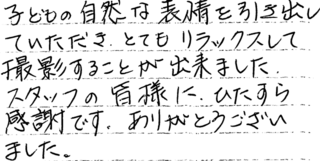 子どもの自然な表情を引き出し
ていただき、とてもリラックスして
撮影することが出来ました。
スタッフの皆様に、ひたすら
感謝です。ありがとうござい
ました。